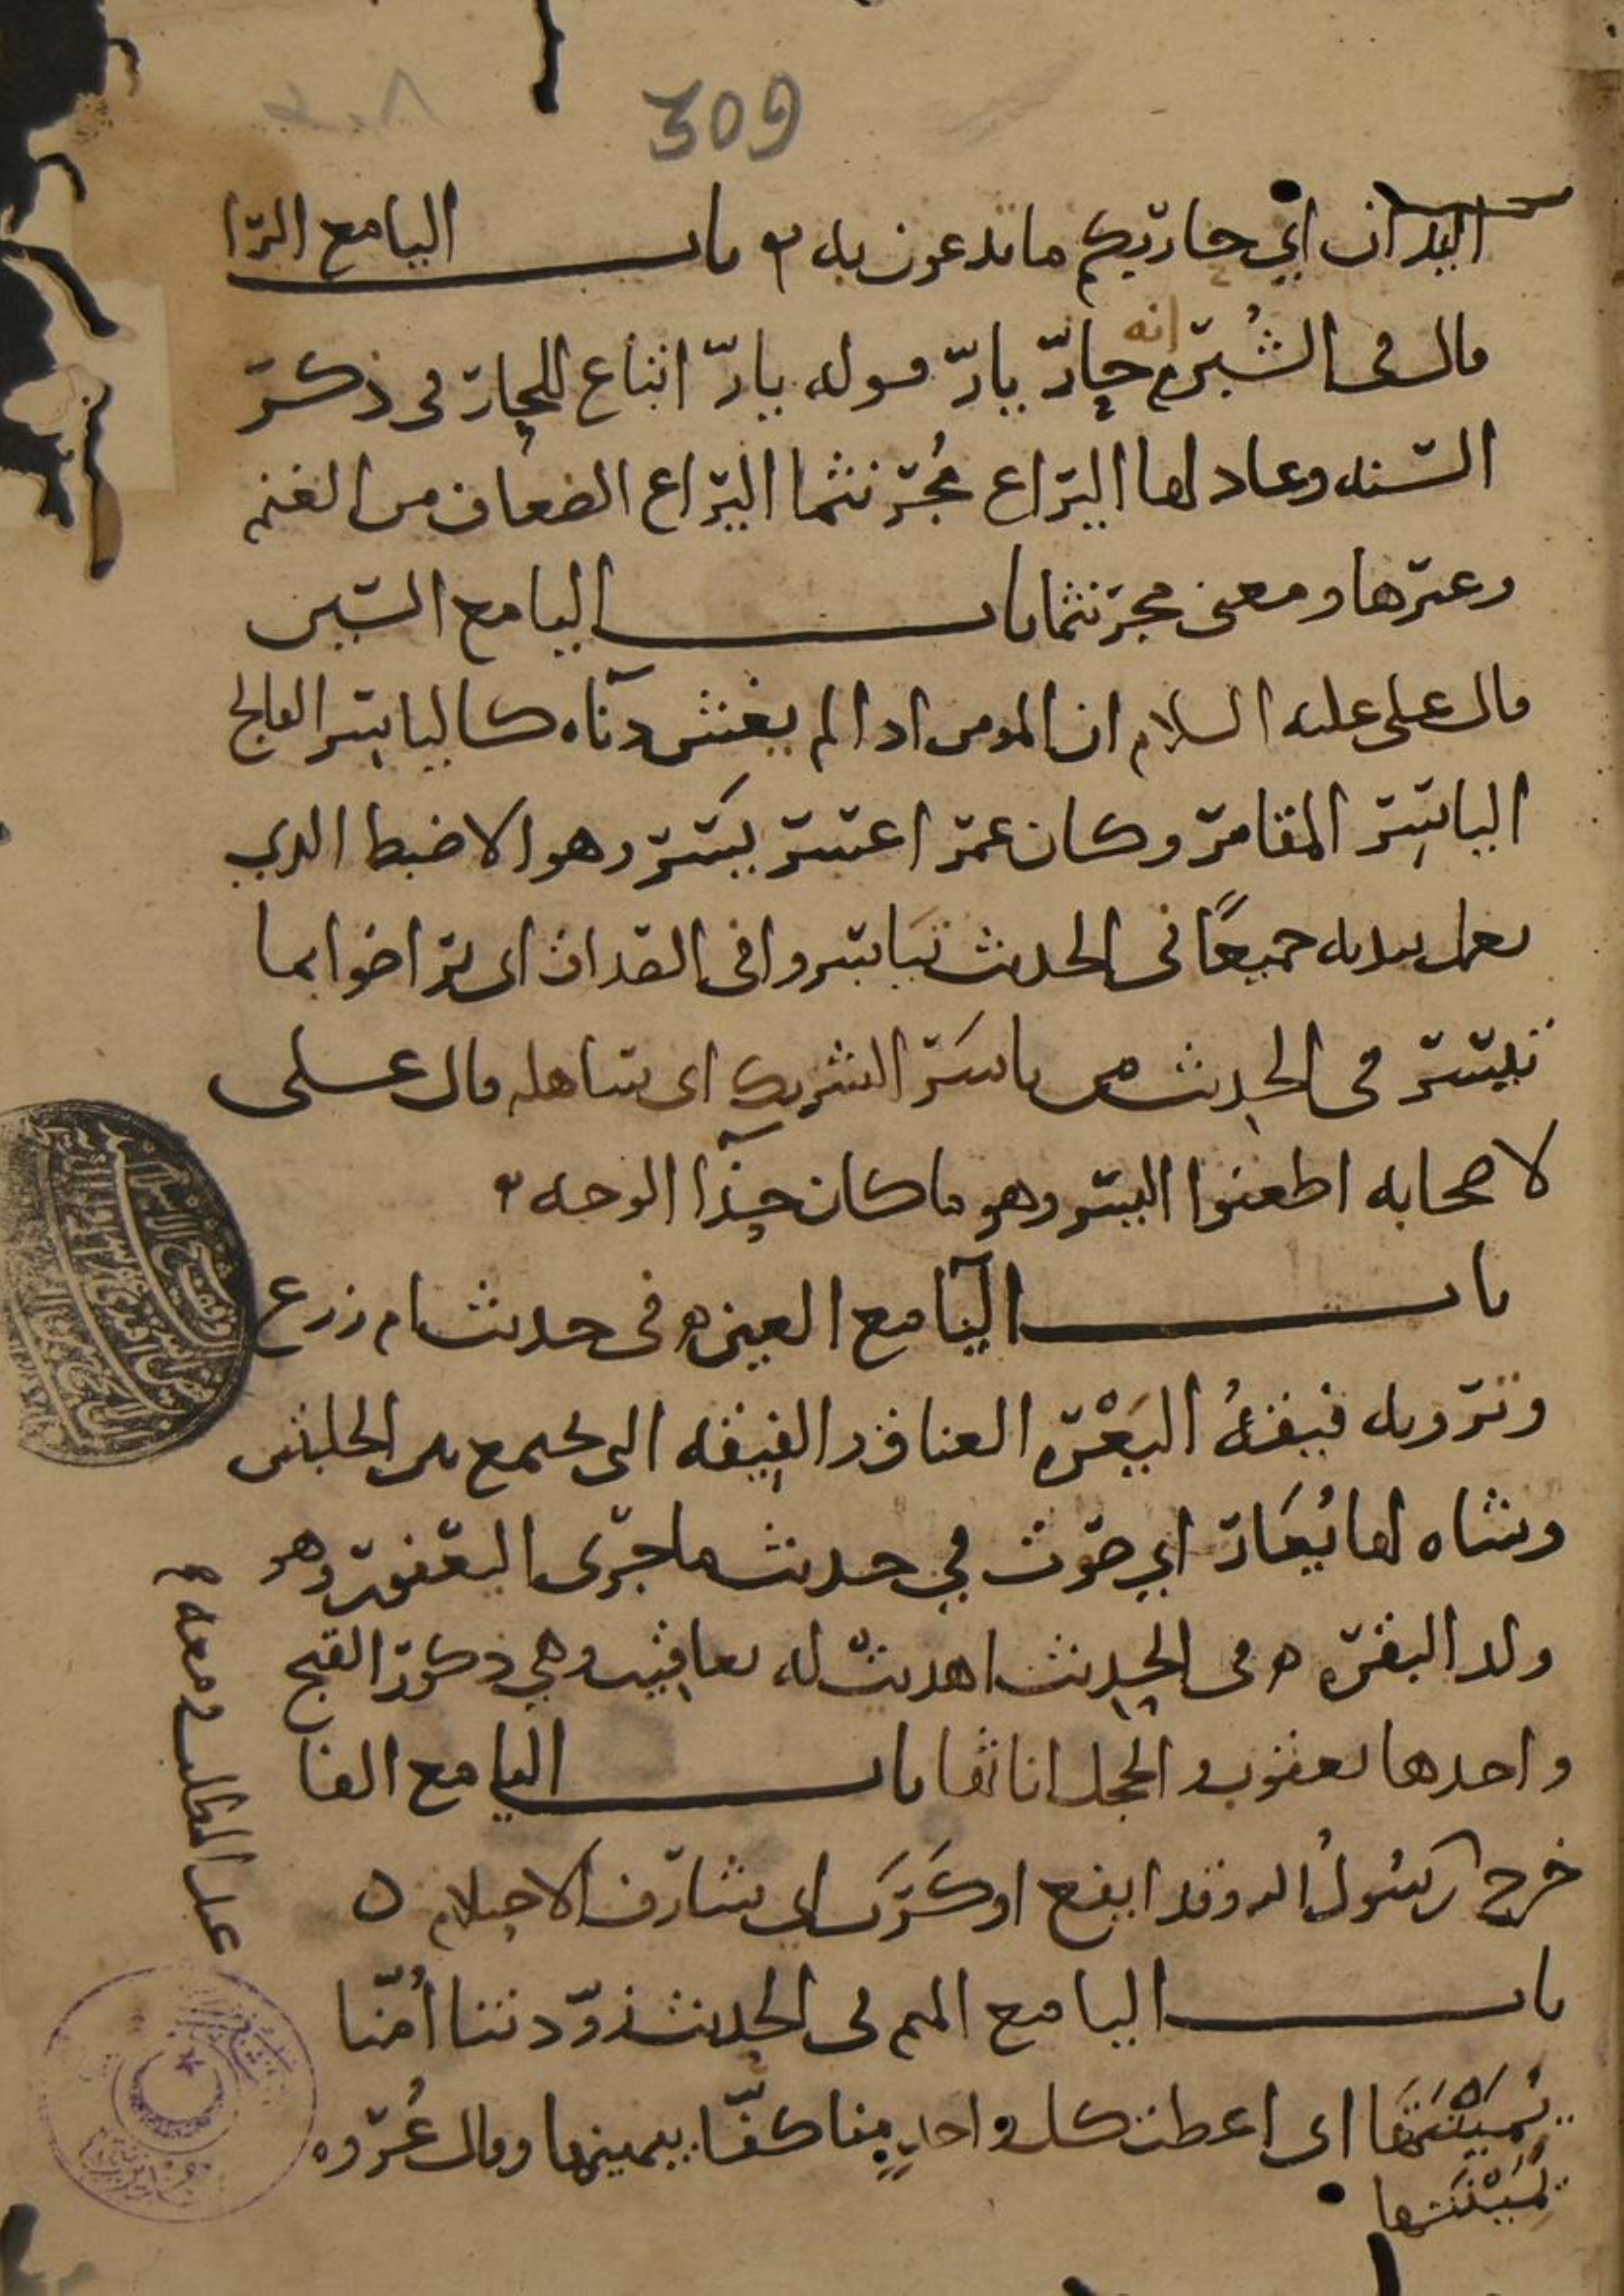 309
اليدان اي حاربكم ما تدعون به باب اليا مع الرا
قال في الشبرم انه حار يار قوله يار اتباع للحار في ذكر
السنه وعاد لها اليراع مجرنثما اليراع الضعاف من الغنم
وغيرها ومعنى مجرنثما باب اليا مع السين
قال علي عليه السلام ان المومن اذا لم يغش دناه كالياسر الفالج
الياسر المقامر وكان عمر اعسر يسر وهو الاضبط الذي
يعمل بيديه جميعًا في الحديث تياسروا في الصداق اي تراضوا بما
تيسر في الحديث من ياسر الشريك اي ساهله قال علي
لاصحابه اطعنوا اليسر وهو ما كان حذا الوجه
باب اليا مع العين في حديث ام زرع
وترويه فيقة اليعرة العناق والفيقه التي تجتمع بين الحلبتين
وشاه لها يعار اي صوت في حديث ما جرى اليعفور وهو
ولد البقره في الحديث اهديت له يعاقيب وهي ذكور القبج
واحدها يعقوب والحجل اناثها باب اليا مع الفا
خرج رسول الله وقد ايفع او كرب اي شارف الاحتلام
باب اليا مع الميم في الحديث زودتنا امنا
يمينتيها اي اعطت كل واحد منا كفا بيمينها وقال عروه
ليمينتها
عبد المطلب ومعه